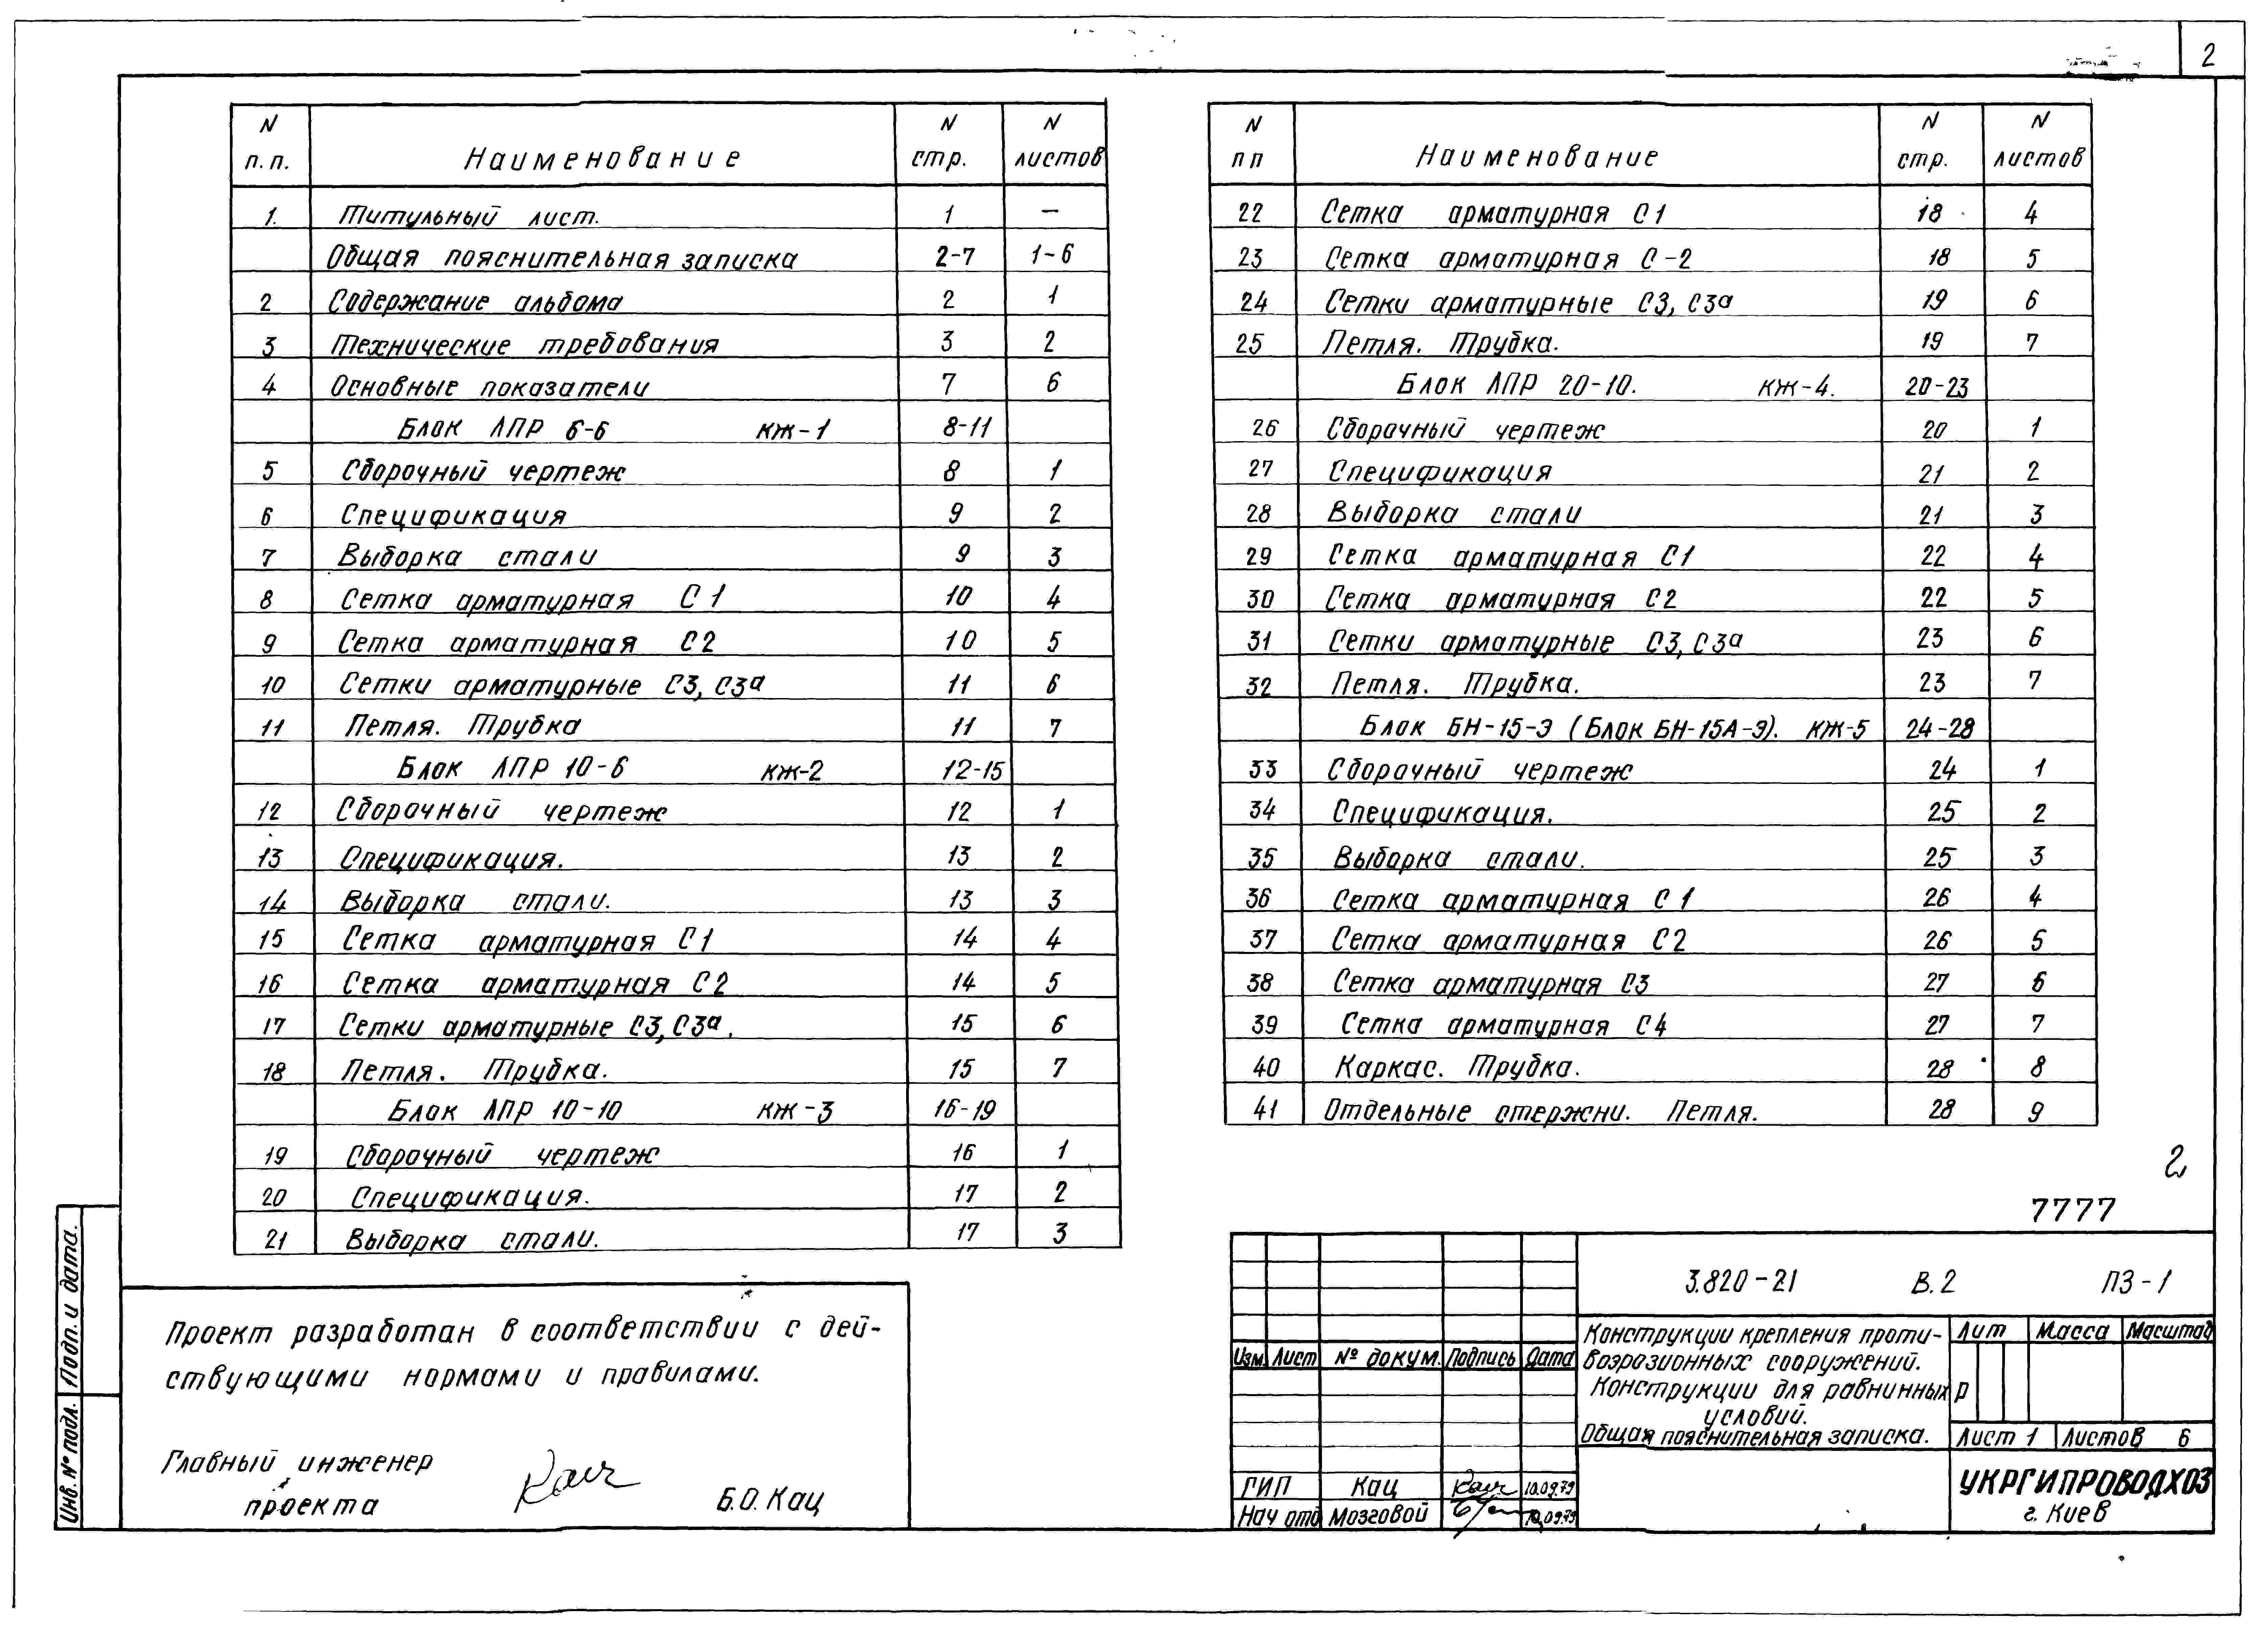 2
N п.п. Наименование N стр. N листов
1. Титульный лист. 1 —
Общая пояснительная записка 2-7 1-6
2 Содержание альбома 2 1
3 Технические требования 3 2
4 Основные показатели 7 6
Блок ЛПР 6-6 КЖ-1 8-11
5 Сборочный чертеж 8 1
6 Спецификация 9 2
7 Выборка стали 9 3
8 Сетка арматурная С1 10 4
9 Сетка арматурная С2 10 5
10 Сетки арматурные С3, С3а 11 6
11 Петля. Трубка 11 7
Блок ЛПР 10-6 КЖ-2 12-15
12 Сборочный чертеж 12 1
13 Спецификация. 13 2
14 Выборка стали. 13 3
15 Сетка арматурная С1 14 4
16 Сетка арматурная С2 14 5
17 Сетки арматурные С3, С3а. 15 6
18 Петля. Трубка. 15 7
Блок ЛПР 10-10 КЖ-3 16-19
19 Сборочный чертеж 16 1
20 Спецификация. 17 2
21 Выборка стали. 17 3
N пп Наименование N стр. N листов
22 Сетка арматурная С1 18 4
23 Сетка арматурная С-2 18 5
24 Сетки арматурные С3, С3а 19 6
25 Петля. Трубка. 19 7
Блок ЛПР 20-10. КЖ-4. 20-23
26 Сборочный чертеж 20 1
27 Спецификация 21 2
28 Выборка стали 21 3
29 Сетка арматурная С1 22 4
30 Сетка арматурная С2 22 5
31 Сетки арматурные С3, С3а 23 6
32 Петля. Трубка. 23 7
Блок БН-15-Э (Блок БН-15А-Э). КЖ-5 24-28
33 Сборочный чертеж 24 1
34 Спецификация. 25 2
35 Выборка стали. 25 3
36 Сетка арматурная С1 26 4
37 Сетка арматурная С2 26 5
38 Сетка арматурная С3 27 6
39 Сетка арматурная С4 27 7
40 Каркас. Трубка. 28 8
41 Отдельные стержни. Петля. 28 9
2
7777
Проект разработан в соответствии с дей-
ствующими нормами и правилами.
Главный инженер
проекта Б.О. Кац
Инв. № подл. Подп. и дата.
3.820-21 В.2 ПЗ-1
Изм. Лист № докум. Подпись Дата
ГИП Кац 10.09.79
Нач отд Мозговой 10.09.79
Конструкции крепления проти-
воэрозионных сооружений.
Конструкции для равнинных
условий.
Общая пояснительная записка.
Лит Масса Масштаб
Р
Лист 1 Листов 6
УКРГИПРОВОДХОЗ
г. Киев